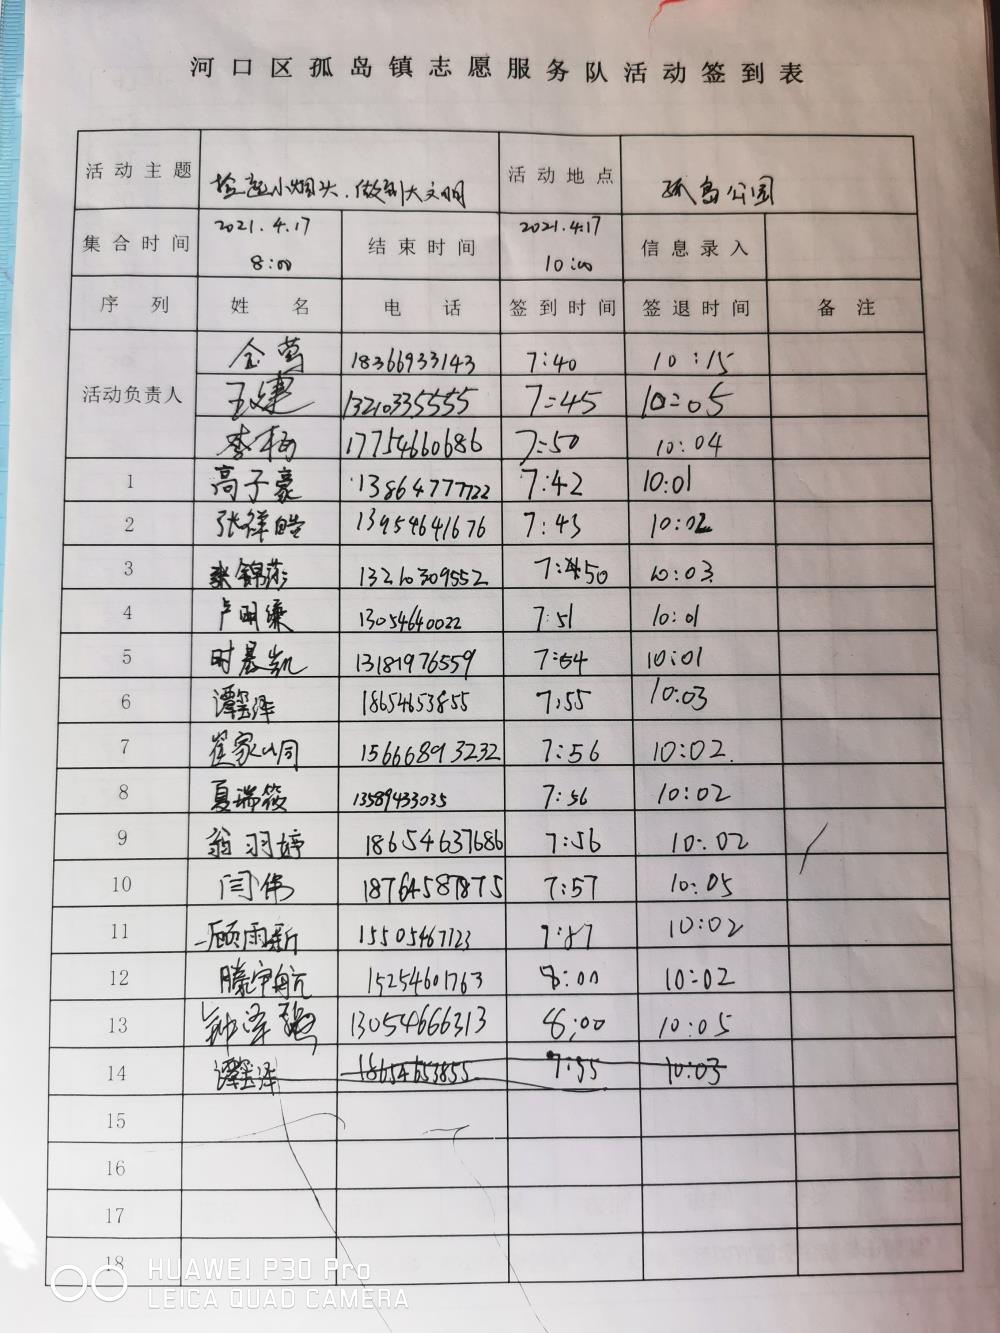 河口区孤岛镇志愿服务队活动签到表
活动主题 捡起小烟头.做到大文明 活动地点 孤岛公园
集合时间 2021.4.17 8:00 结束时间 2021.4.17 10:00 信息录入
序列 姓名 电话 签到时间 签退时间 备注
活动负责人
18366933143 7:40 10:15
王建 13210335555 7:45 10:05
李梅 17754660686 7:50 10:04
1 高子豪 13864777722 7:42 10:01
2 张祥 13954641676 7:43 10:02
3 张锦莎 13210309552 7:50 10:03
4 卢明 13054640022 7:51 10:01
5 时晨凯 13181976559 7:54 10:01
6 谭玺泽 18654653855 7:55 10:03
7 崔家 15666893232 7:56 10:02.
8 夏瑞筱 13589433035 7:56 10:02
9 翁羽婷 18654637686 7:56 10:02
10 闫伟 18764587875 7:57 10:05
11 顾雨新 15505467123 10:02
12 滕宇航 15254601763 8:00 10:02
13 钟泽 13054666313 8:00 10:05
14 谭玺泽 18654653855 7:55 10:03
15
16
17
18
HUAWEI P30 Pro
LEICA QUAD CAMERA